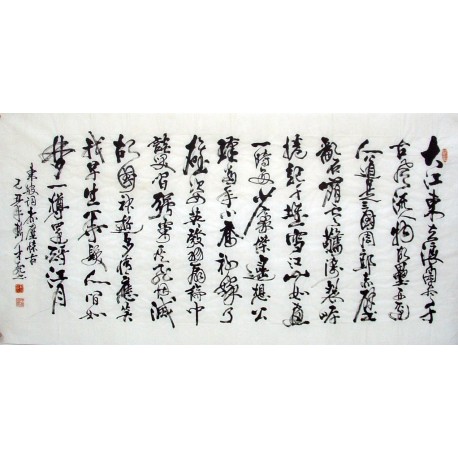 大江東去浪淘盡千
古風流人物故壘西邊
人道是三國周郎赤壁
亂石崩雲驚濤裂岸
捲起千堆雪江山如畫
一時多少豪傑遙想公
瑾當年小喬初嫁了
雄姿英發羽扇綸巾
談笑間強虜灰飛煙滅
故國神遊多情應笑
我早生華髮人間如
夢一樽還酹江月
東坡詞赤壁懷古
己丑年